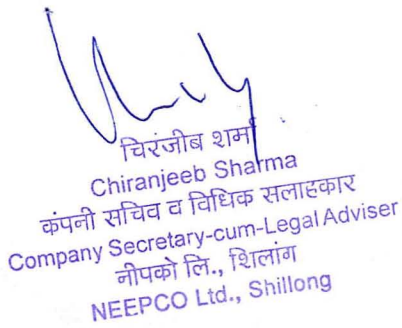 चिरंजीब शर्मा
Chiranjeeb Sharma
कंपनी सचिव व विधिक सलाहकार
Company Secretary-cum-Legal Adviser
नीपको लि., शिलांग
NEEPCO Ltd., Shillong